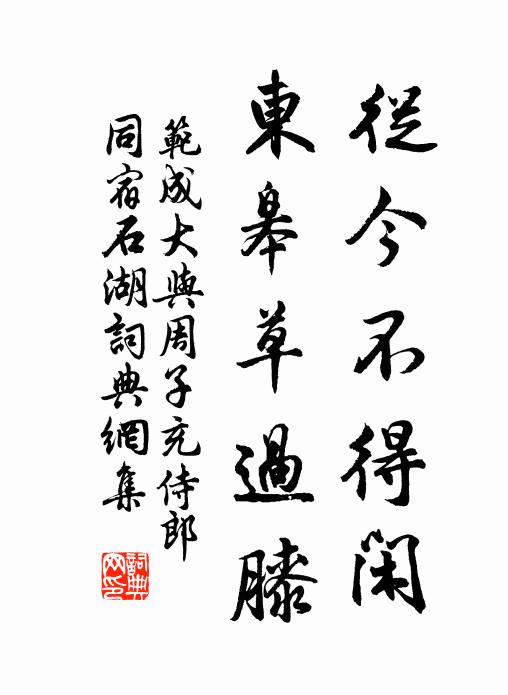 從今不得閑
東皋草過膝
範成大與周子充侍郎
同宿石湖詞典網集
詞典
网印